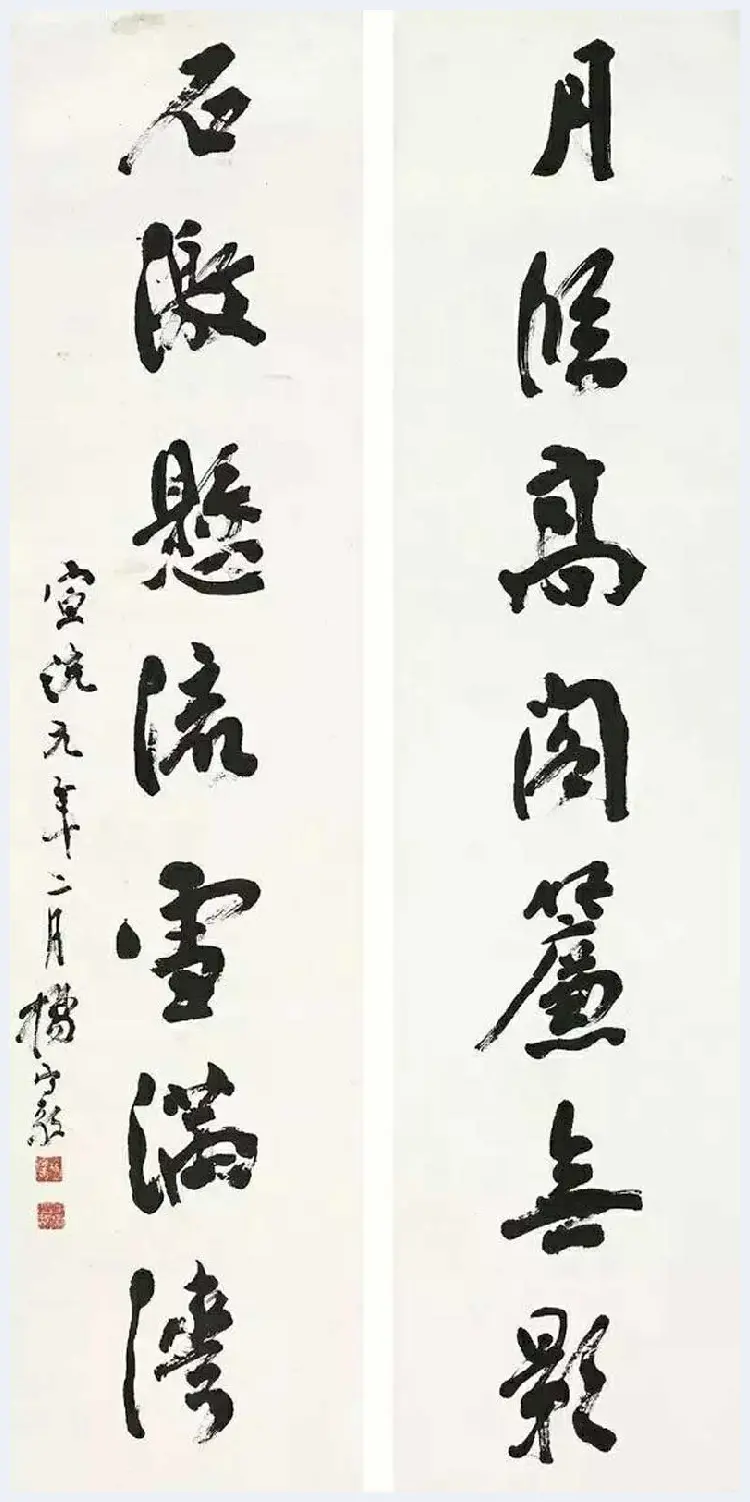 月臨高閣簾無影
石激懸流雪滿灣
宣統元年二月楊守敬